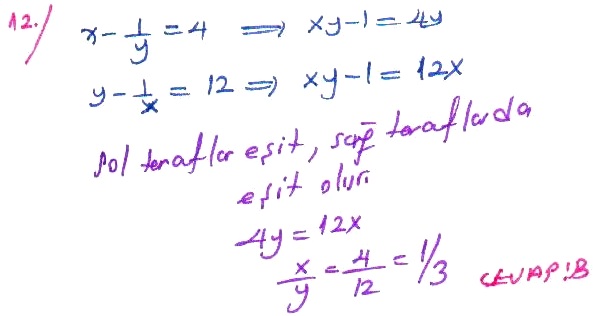 12./ x - 1/y = 4 ⟹ xy-1 = 4y
y - 1/x = 12 ⟹ xy-1 = 12x
Sol taraflar eşit, sağ taraflarda
eşit olur.
4y = 12x
x/y = 4/12 = 1/3 CEVAP:B